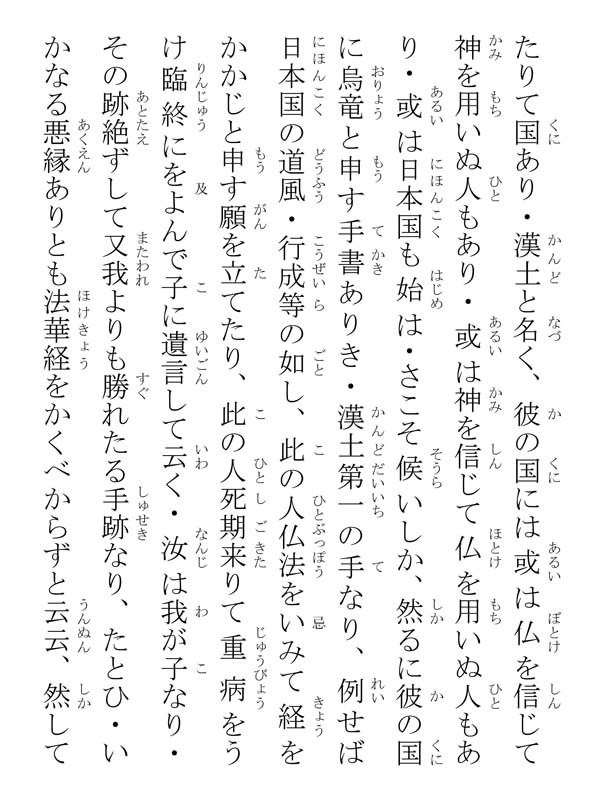 たりて国あり・漢土と名く、彼の国には或は仏を信じて
神を用いぬ人もあり・或は神を信じて仏を用いぬ人もあ
り・或は日本国も始は・さこそ候いしか、然るに彼の国
に烏竜と申す手書ありき・漢土第一の手なり、例せば
日本国の道風・行成等の如し、此の人仏法をいみて経を
かかじと申す願を立てたり、此の人死期来りて重病をう
け臨終にをよんで子に遺言して云く・汝は我が子なり・
その跡絶ずして又我よりも勝れたる手跡なり、たとひ・い
かなる悪縁ありとも法華経をかくべからずと云云、然して